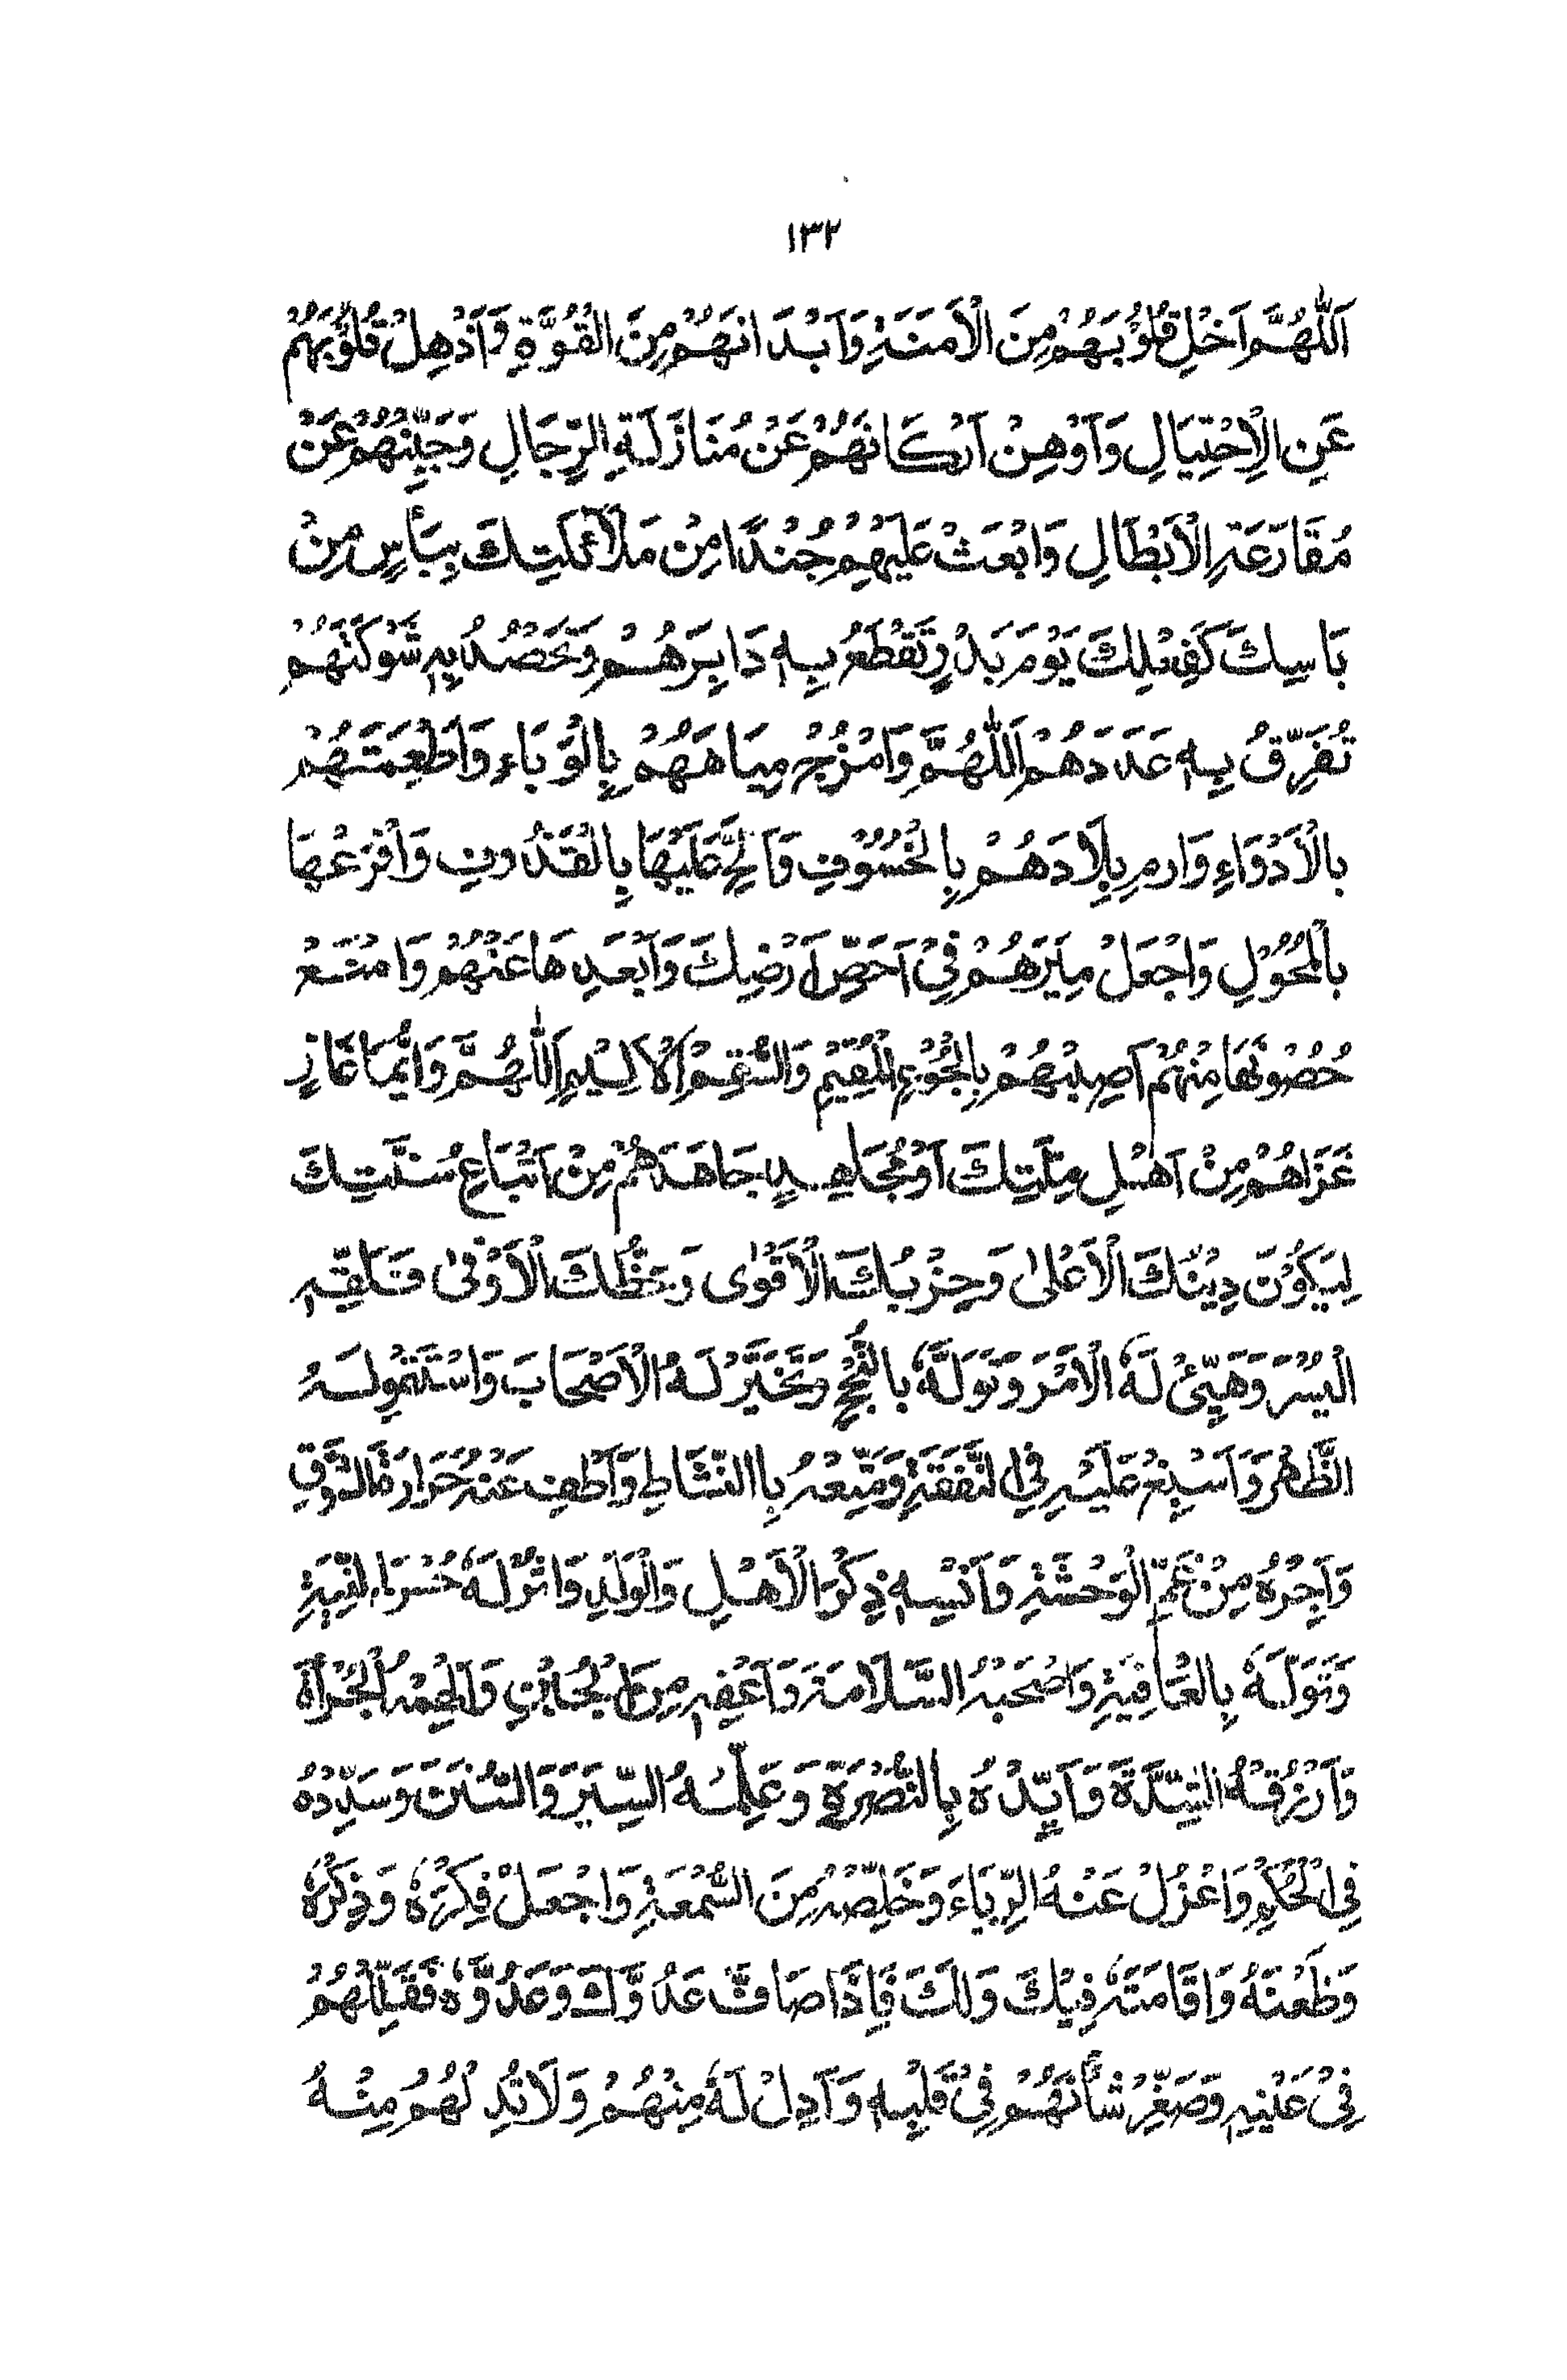 ١٣٢
اَللّٰهُمَّ اَخْلِ قُلُوْبَهُمْ مِنَ الْاَمَنَةِ وَاَبْدَانَهُمْ مِنَ الْقُوَّةِ وَاَذْهِلْ قُلُوْبَهُمْ
عَنِ الْاِحْتِيَالِ وَاَوْهِنْ اَرْكَانَهُمْ عَنْ مُنَازَلَةِ الرِّجَالِ وَجَبِّنْهُمْ عَنْ
مُقَارَعَةِ الْاَبْطَالِ وَابْعَثْ عَلَيْهِمْ جُنْدًا مِنْ مَلَآئِكَتِكَ بِبَأْسٍ مِنْ
بَاسِكَ كَفِعْلِكَ يَوْمَ بَدْرٍ تَقْطَعُ بِهٖ دَابِرَهُمْ وَتَحْصُدُ بِهٖ شَوْكَتَهُمْ
تُفَرِّقُ بِهٖ عَدَدَهُمْ اَللّٰهُمَّ وَامْزُجْ مِيَاهَهُمْ بِالْوَبَاءِ وَاَطْعِمَتَهُمْ
بِالْاَدْوَاءِ وَارْمِ بِلَادَهُمْ بِالْخُسُوْفِ وَاَلِحَّ عَلَيْهَا بِالْقُذُوفِ وَافْرَعْهَا
بِالْمُحُوْلِ وَاجْعَلْ مِيَرَهُمْ فِيْ اَحَصِّ اَرْضِكَ وَاَبْعَدِهَا عَنْهُمْ وَامْنَعْ
حُصُوْنَهَا مِنْهُمْ اَصِبْهُمْ بِالْجُوْعِ الْمُقِيْمِ وَالسُّقْمِ الْاَلِيْمِ اَللّٰهُمَّ وَاَيُّمَا غَازٍ
غَزَاهُمْ مِنْ اَهْلِ مِلَّتِكَ اَوْ مُجَاهِدٍ جَاهَدَهُمْ مِنْ اَتْبَاعِ سُنَّتِكَ
لِيَكُوْنَ دِيْنُكَ الْاَعْلٰى وَحِزْبُكَ الْاَقْوٰى وَحَظُّكَ الْاَوْفٰى فَلَقِّهِ
الْيُسْرَ وَهَيِّئْ لَهُ الْاَمْرَ وَتَوَلَّهٗ بِالنُّجْحِ وَتَخَيَّرْ لَهُ الْاَصْحَابَ وَاسْتَقْوِلَهُ
الظَّهْرَ وَاَسْبِغْ عَلَيْهِ فِي النَّفَقَةِ وَمَتِّعْهُ بِاالنَّشَاطِ وَاَطْفِ عَنْهُ حَرَارَةَ الشَّوْقِ
وَاَجِرْهُ مِنْ غَمِّ الْوَحْشَةِ وَاَنْسِهٖ ذِكْرَ الْاَهْلِ وَالْوَلَدِ وَاْثُرْ لَهٗ حُسْنَ النِّيَّةِ
وَتَوَلَّهٗ بِالْعَافِيَةِ وَاَصْحِبْهُ السَّلَامَةَ وَاَعْفِهٖ مِنَ الْجُبْنِ وَاَلْهِمْهُ الْجُرْاَةَ
وَارْزُقْهُ الشِّدَّةَ وَاَيِّدْهُ بِالنُّصْرَةِ وَعَلِّمْهُ السِّيَرَ وَالسُّنَنَ وَسَدِّدْهُ
فِي الْحُكْمِ وَاعْزُلْ عَنْهُ الرِّيَاءَ وَخَلِّصْهُ مِنَ السُّمْعَةِ وَاجْعَلْ فِكْرَهٗ وَذِكْرَهٗ
وَظَعْنَهٗ وَاِقَامَتَهٗ فِيْكَ وَلَكَ فَاِذَا صَافَّ عَدُوَّكَ وَعَدُوَّهٗ فَقَلِّلْهُمْ
فِيْ عَيْنِهٖ وَصَغِّرْ شَأْنَهُمْ فِيْ قَلْبِهٖ وَاَدِلْ لَهٗ مِنْهُمْ وَلَا تُدِلْهُمْ مِنْهُ